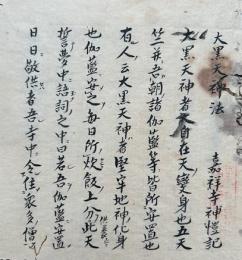 大黒天神法
嘉祥寺神愷記
大黒天神者大自在天變身也五天
竺并吾朝諸伽藍等皆所安置也
有人云大黒天神者堅牢地神化身
也伽藍安之毎日所炊飯上分供養此天
誓夢中語詞之中曰若吾伽藍安置
日日敬供者吾寺中令住衆多僧